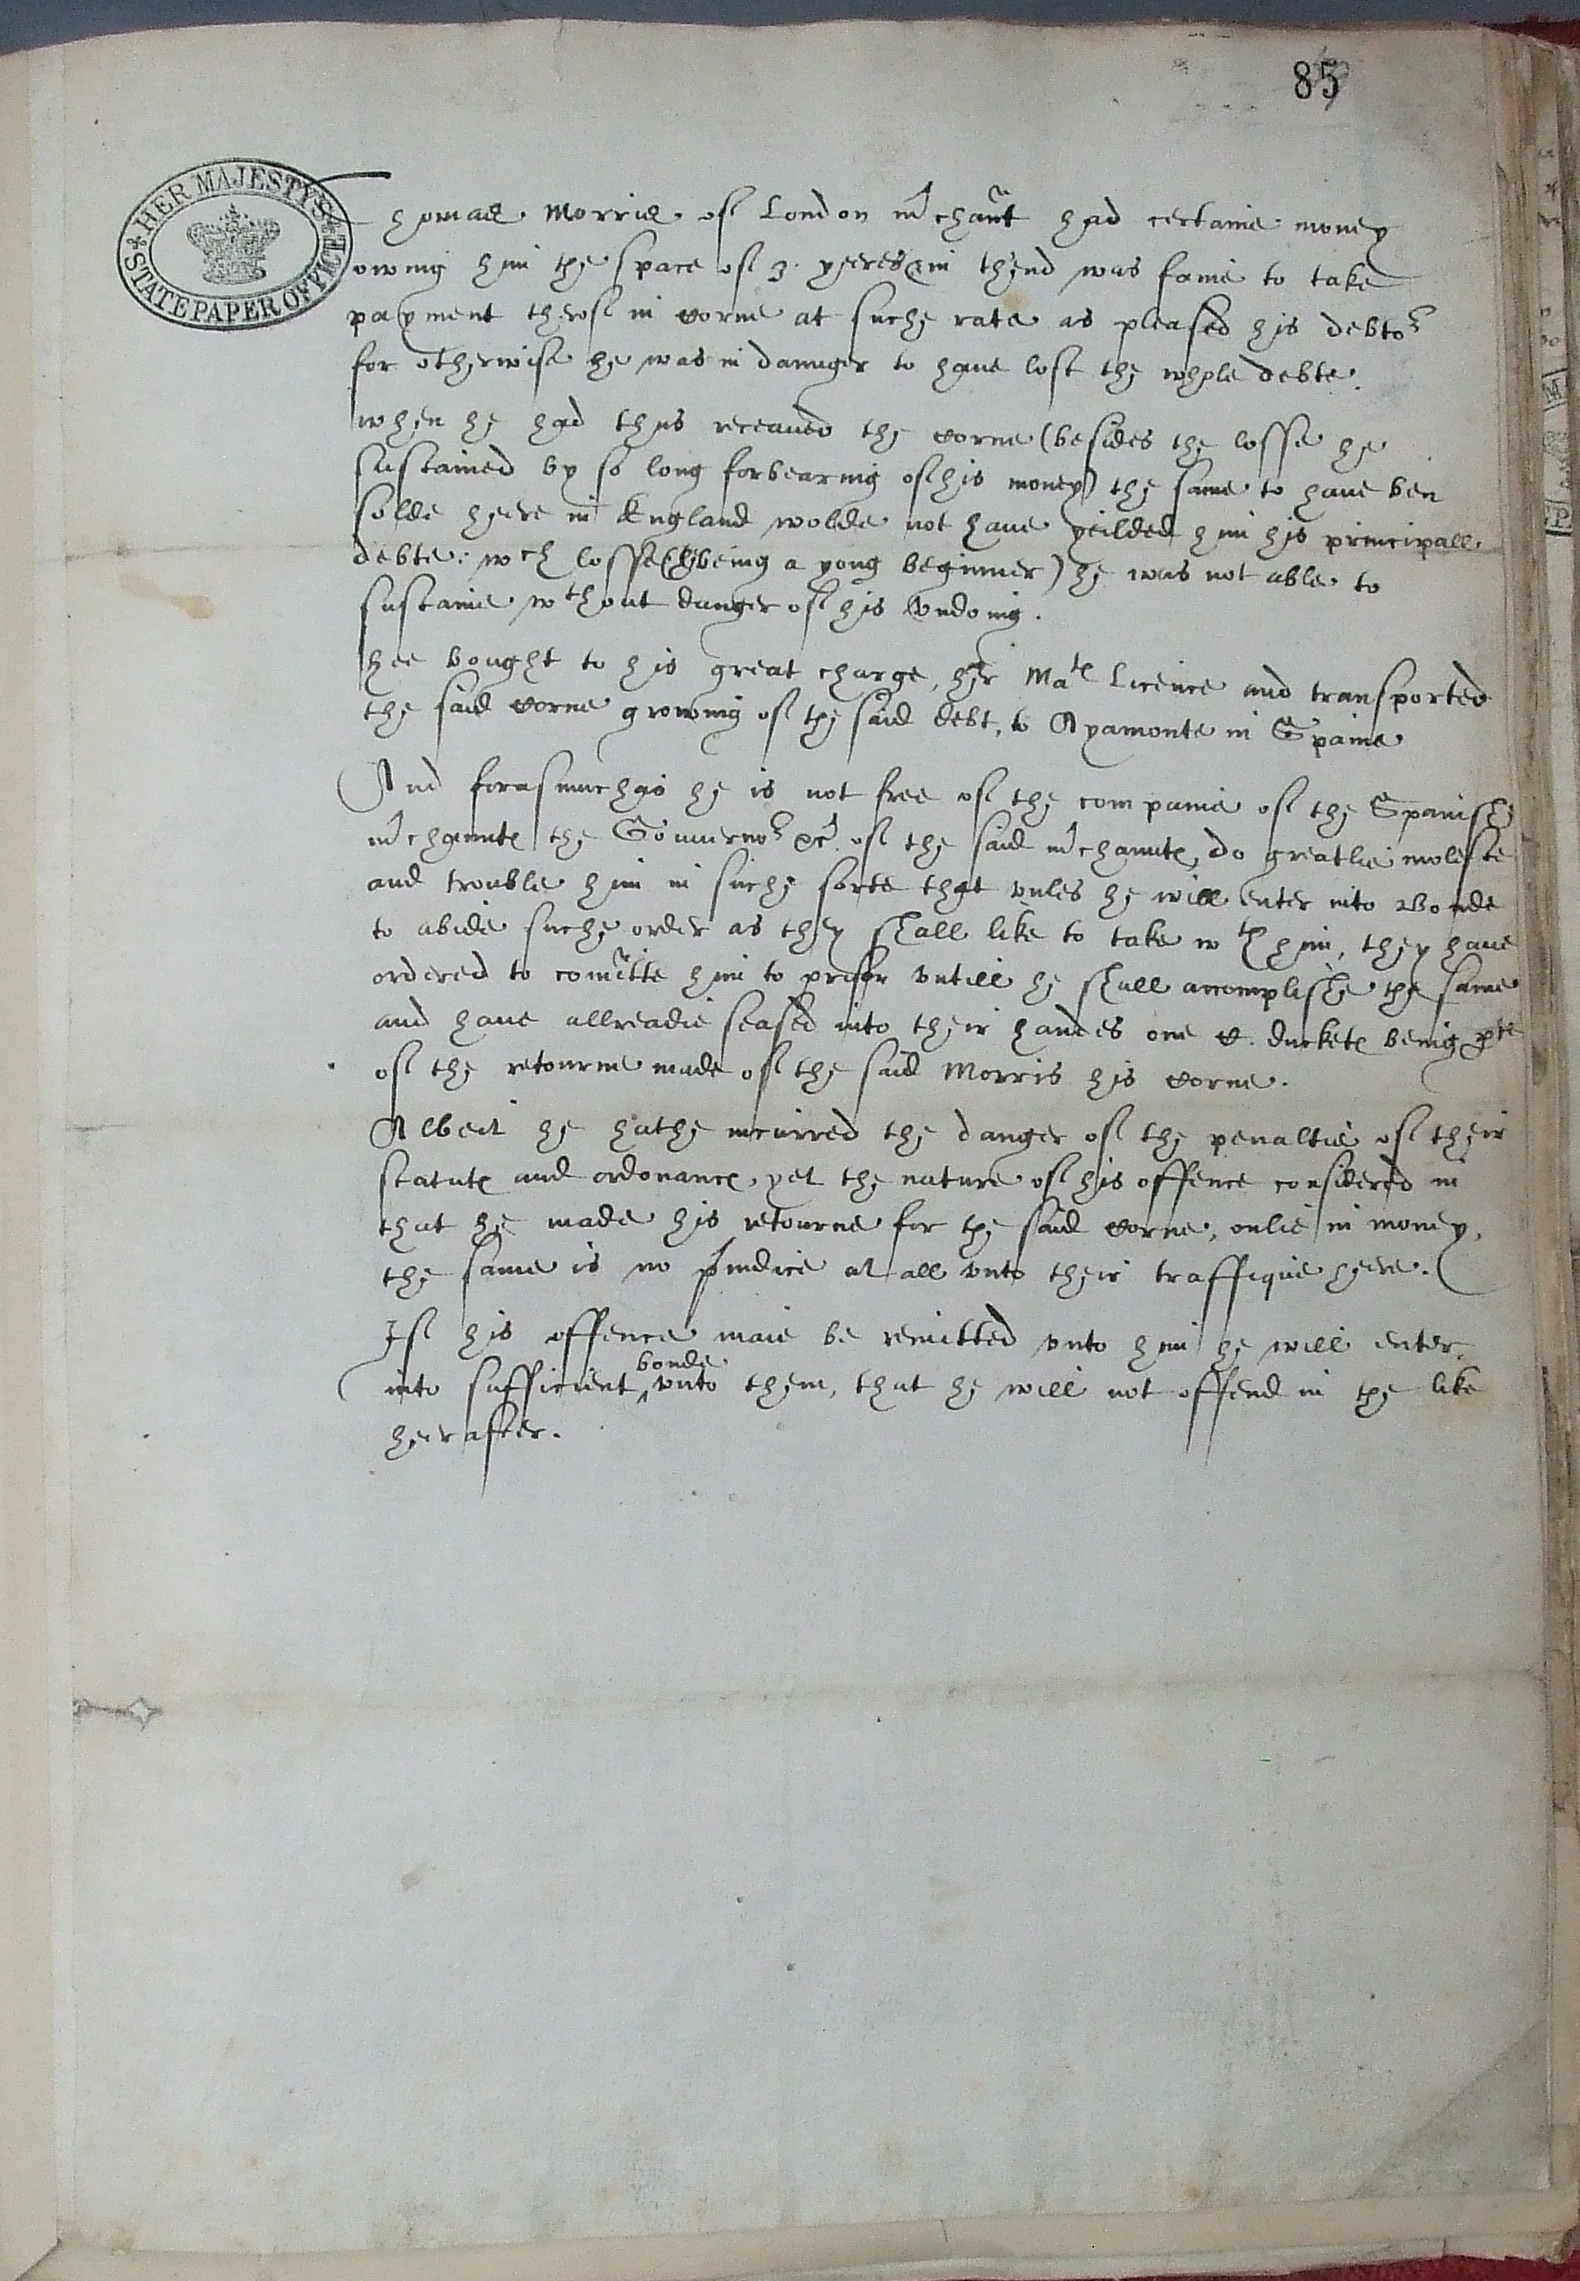 85
HER MAJESTY'S STATE PAPER OFFICE
Thomas Morris of London m'chaũt had certaine money
owing him the space of 3. yeeres & in th'end was faine to take
payment therof in corne at suche rate as pleased his debtor
for otherwise he was in daunger to haue lost the whole debte.
when he had thus receaued the corne (besides the losse he
sustained by so long forbearing of his money) the same to haue ben
solde heere in England wolde not haue yeilded him his principall
debte: wch losse (he being a yong beginner) he was not able to
sustaine wthout danger of his vndoing.
hee bought to his great charge, her Mate Licence and transported
the said corne growing of the said debt, to Ayamonte in Spaine
And forasmuch as he is not free of the companie of the Spanishe
m'chauntes the Gouuernor &c. of the said m'chauntes, do greatlie moleste
and trouble him in suche sorte that vnles he will enter into Bonde
to abide suche order as they shall like to take wth him, they haue
ordered to comĩtte him to prison vntill he shall accomplishe the same
and haue allreadie seased into their handes one C. duckets being pte
of the retourne made of the said Morris his corne.
Albeit he hathe incurred the danger of the penaltie of their
statutes and ordonances, yet the nature of his offence considered in
that he made his retourne for the said corne, onlie in money,
the same is no p'iudice at all vnto their traffique heere.
If his offence maie be remitted vnto him he will enter
into sufficient bonde vnto them, that he will not offend in the like
heerafter.